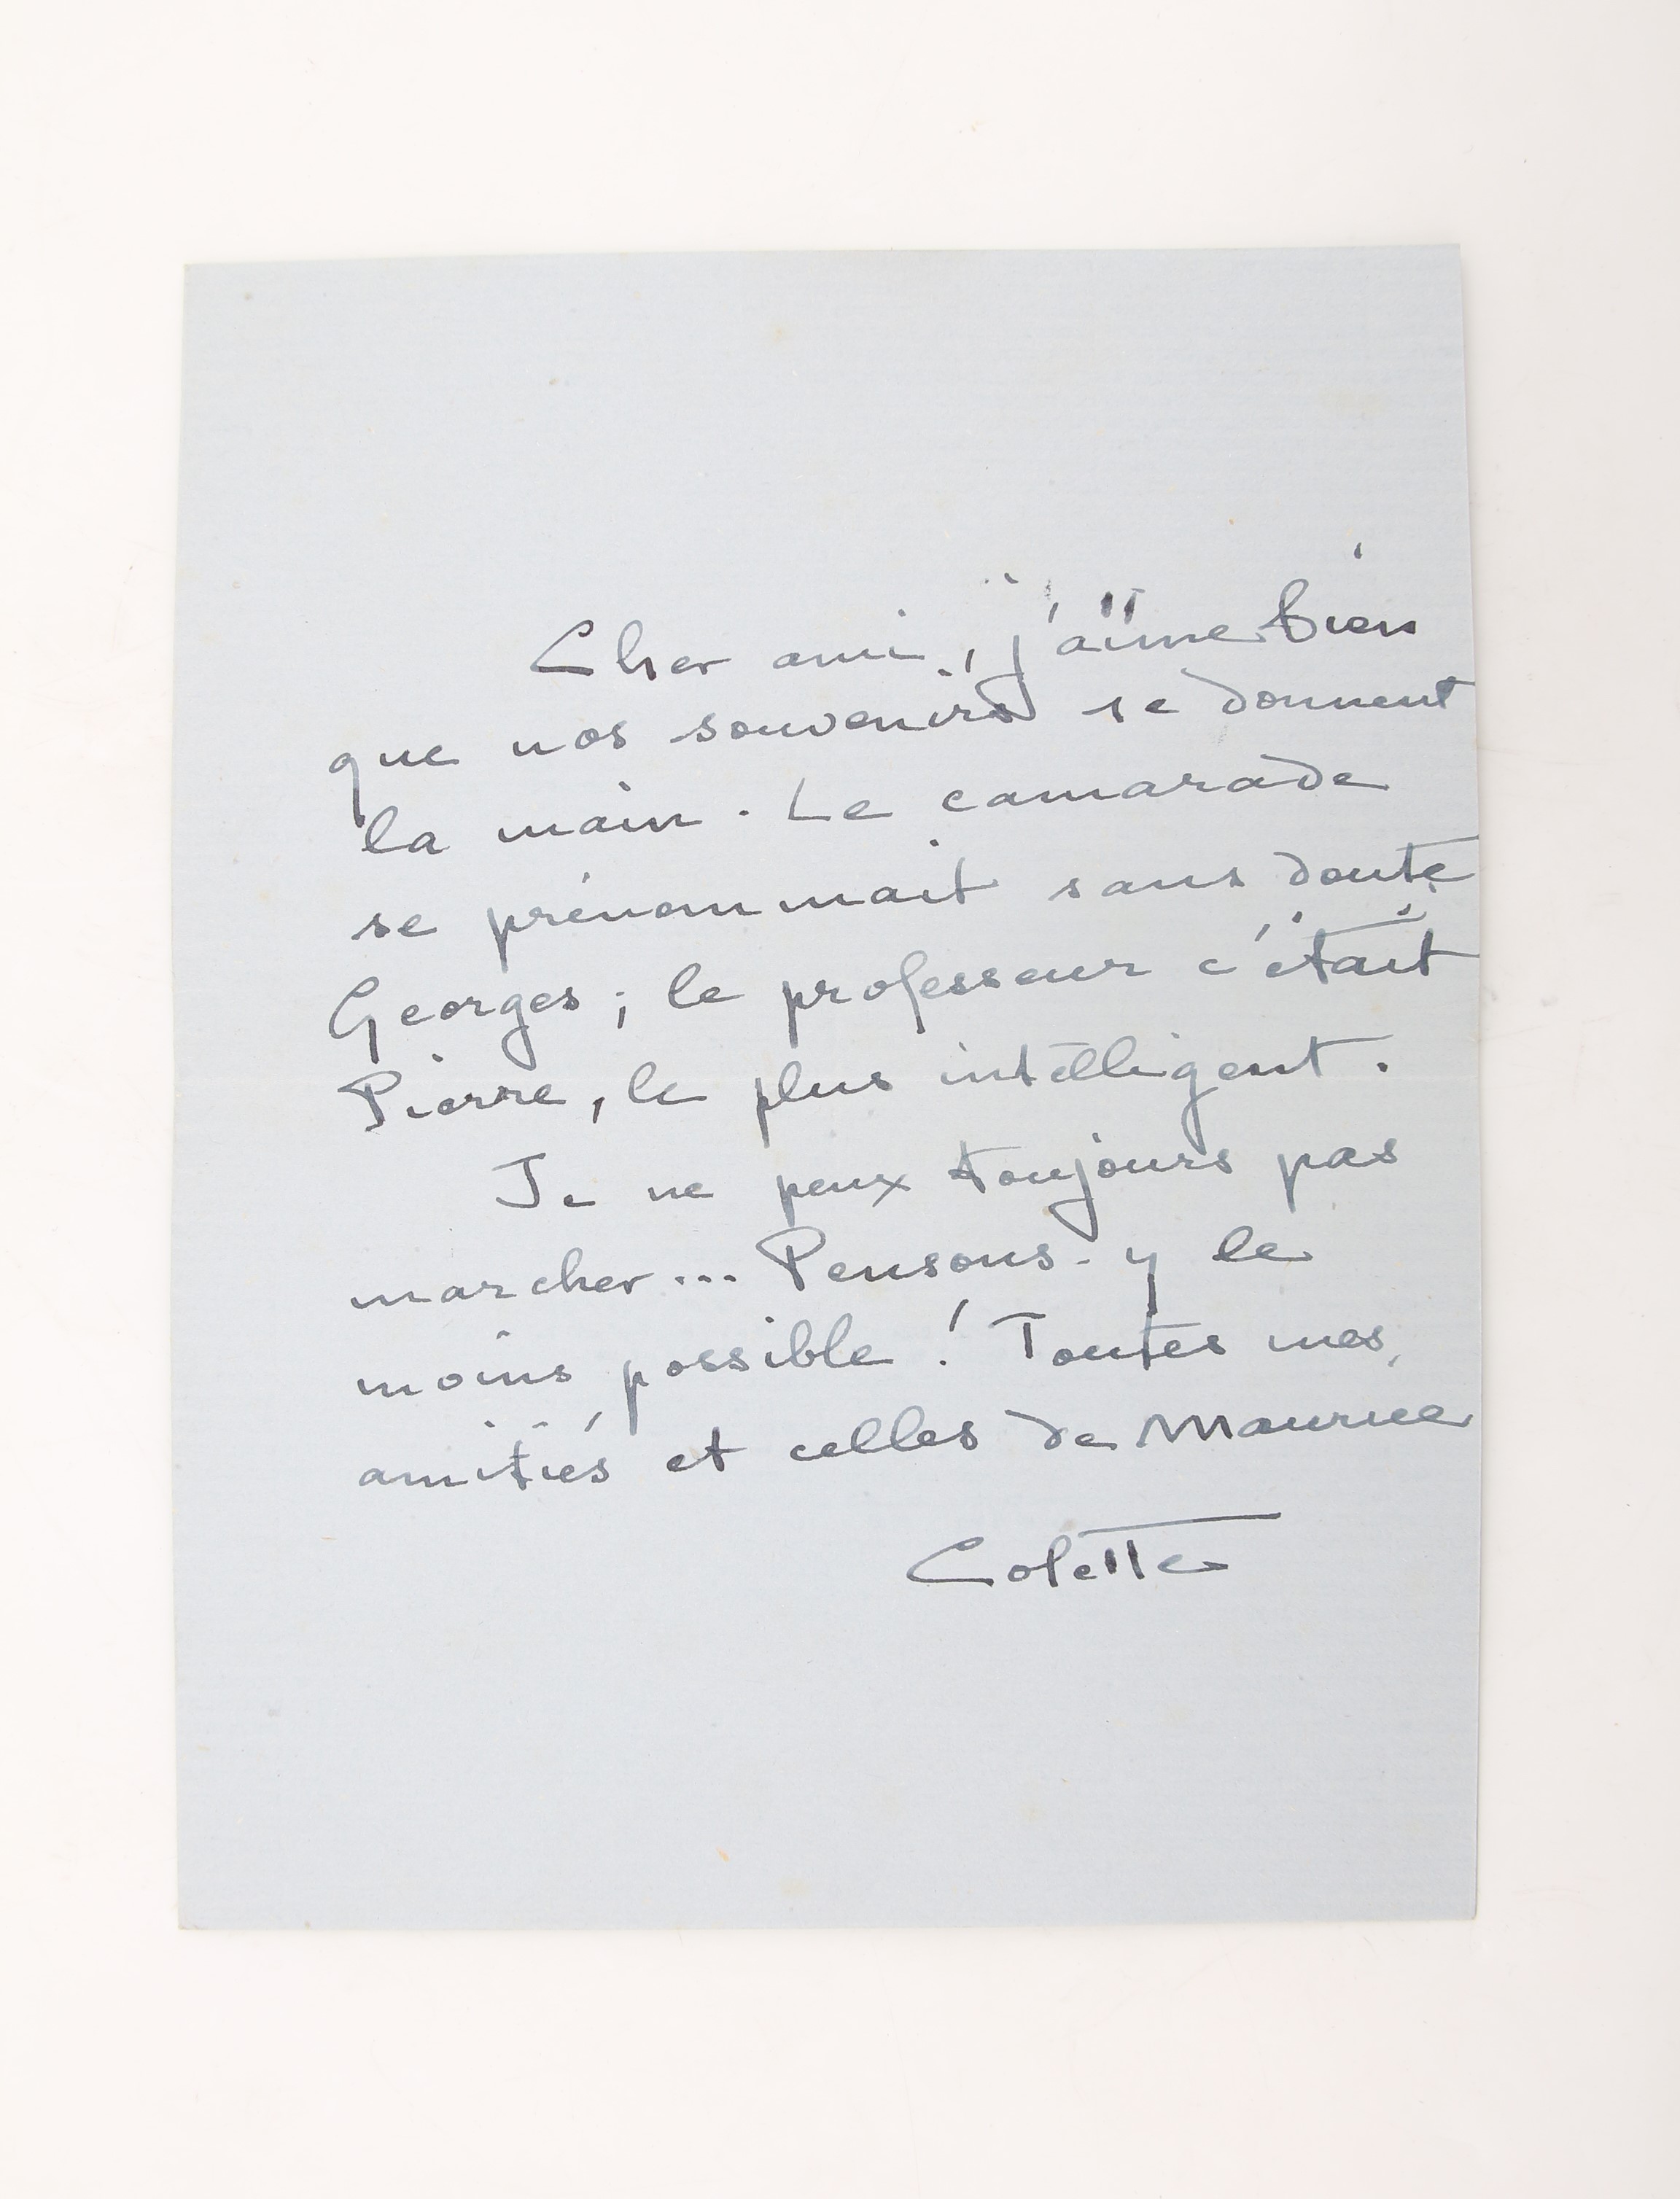 Cher ami, j'aime bien
que nos souvenirs se donnent
la main. Le camarade
se prénommait sans doute
Georges ; le professeur c'était
Pierre, le plus intelligent.
Je ne peux toujours pas
marcher... Pensons-y le
moins possible ! Toutes mes
amitiés et celles de Maurice
Colette